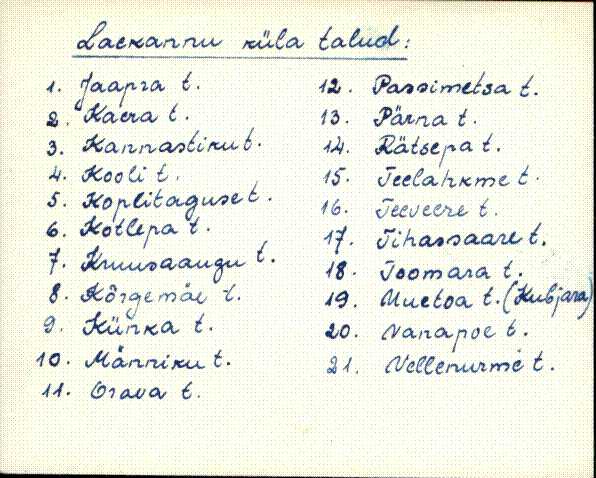 Laekannu küla talud:
1. Jaapra t.
2. Kaera t.
3. Kannastiku t.
4. Kooli t.
5. Koplitaguse t.
6. Kotlepa t.
7. Kruusaaugu t.
8. Kõrgemäe t.
9. Künka t.
10. Männiku t.
11. Orava t.
12. Passimetsa t.
13. Pärna t.
14. Rätsepa t.
15. Teelahkme t.
16. Teeveere t.
17. Tihassaare t.
18. Toomara t.
19. Uuetoa t. (Kubjara)
20. Vanapoe t.
21. Vellenurme t.